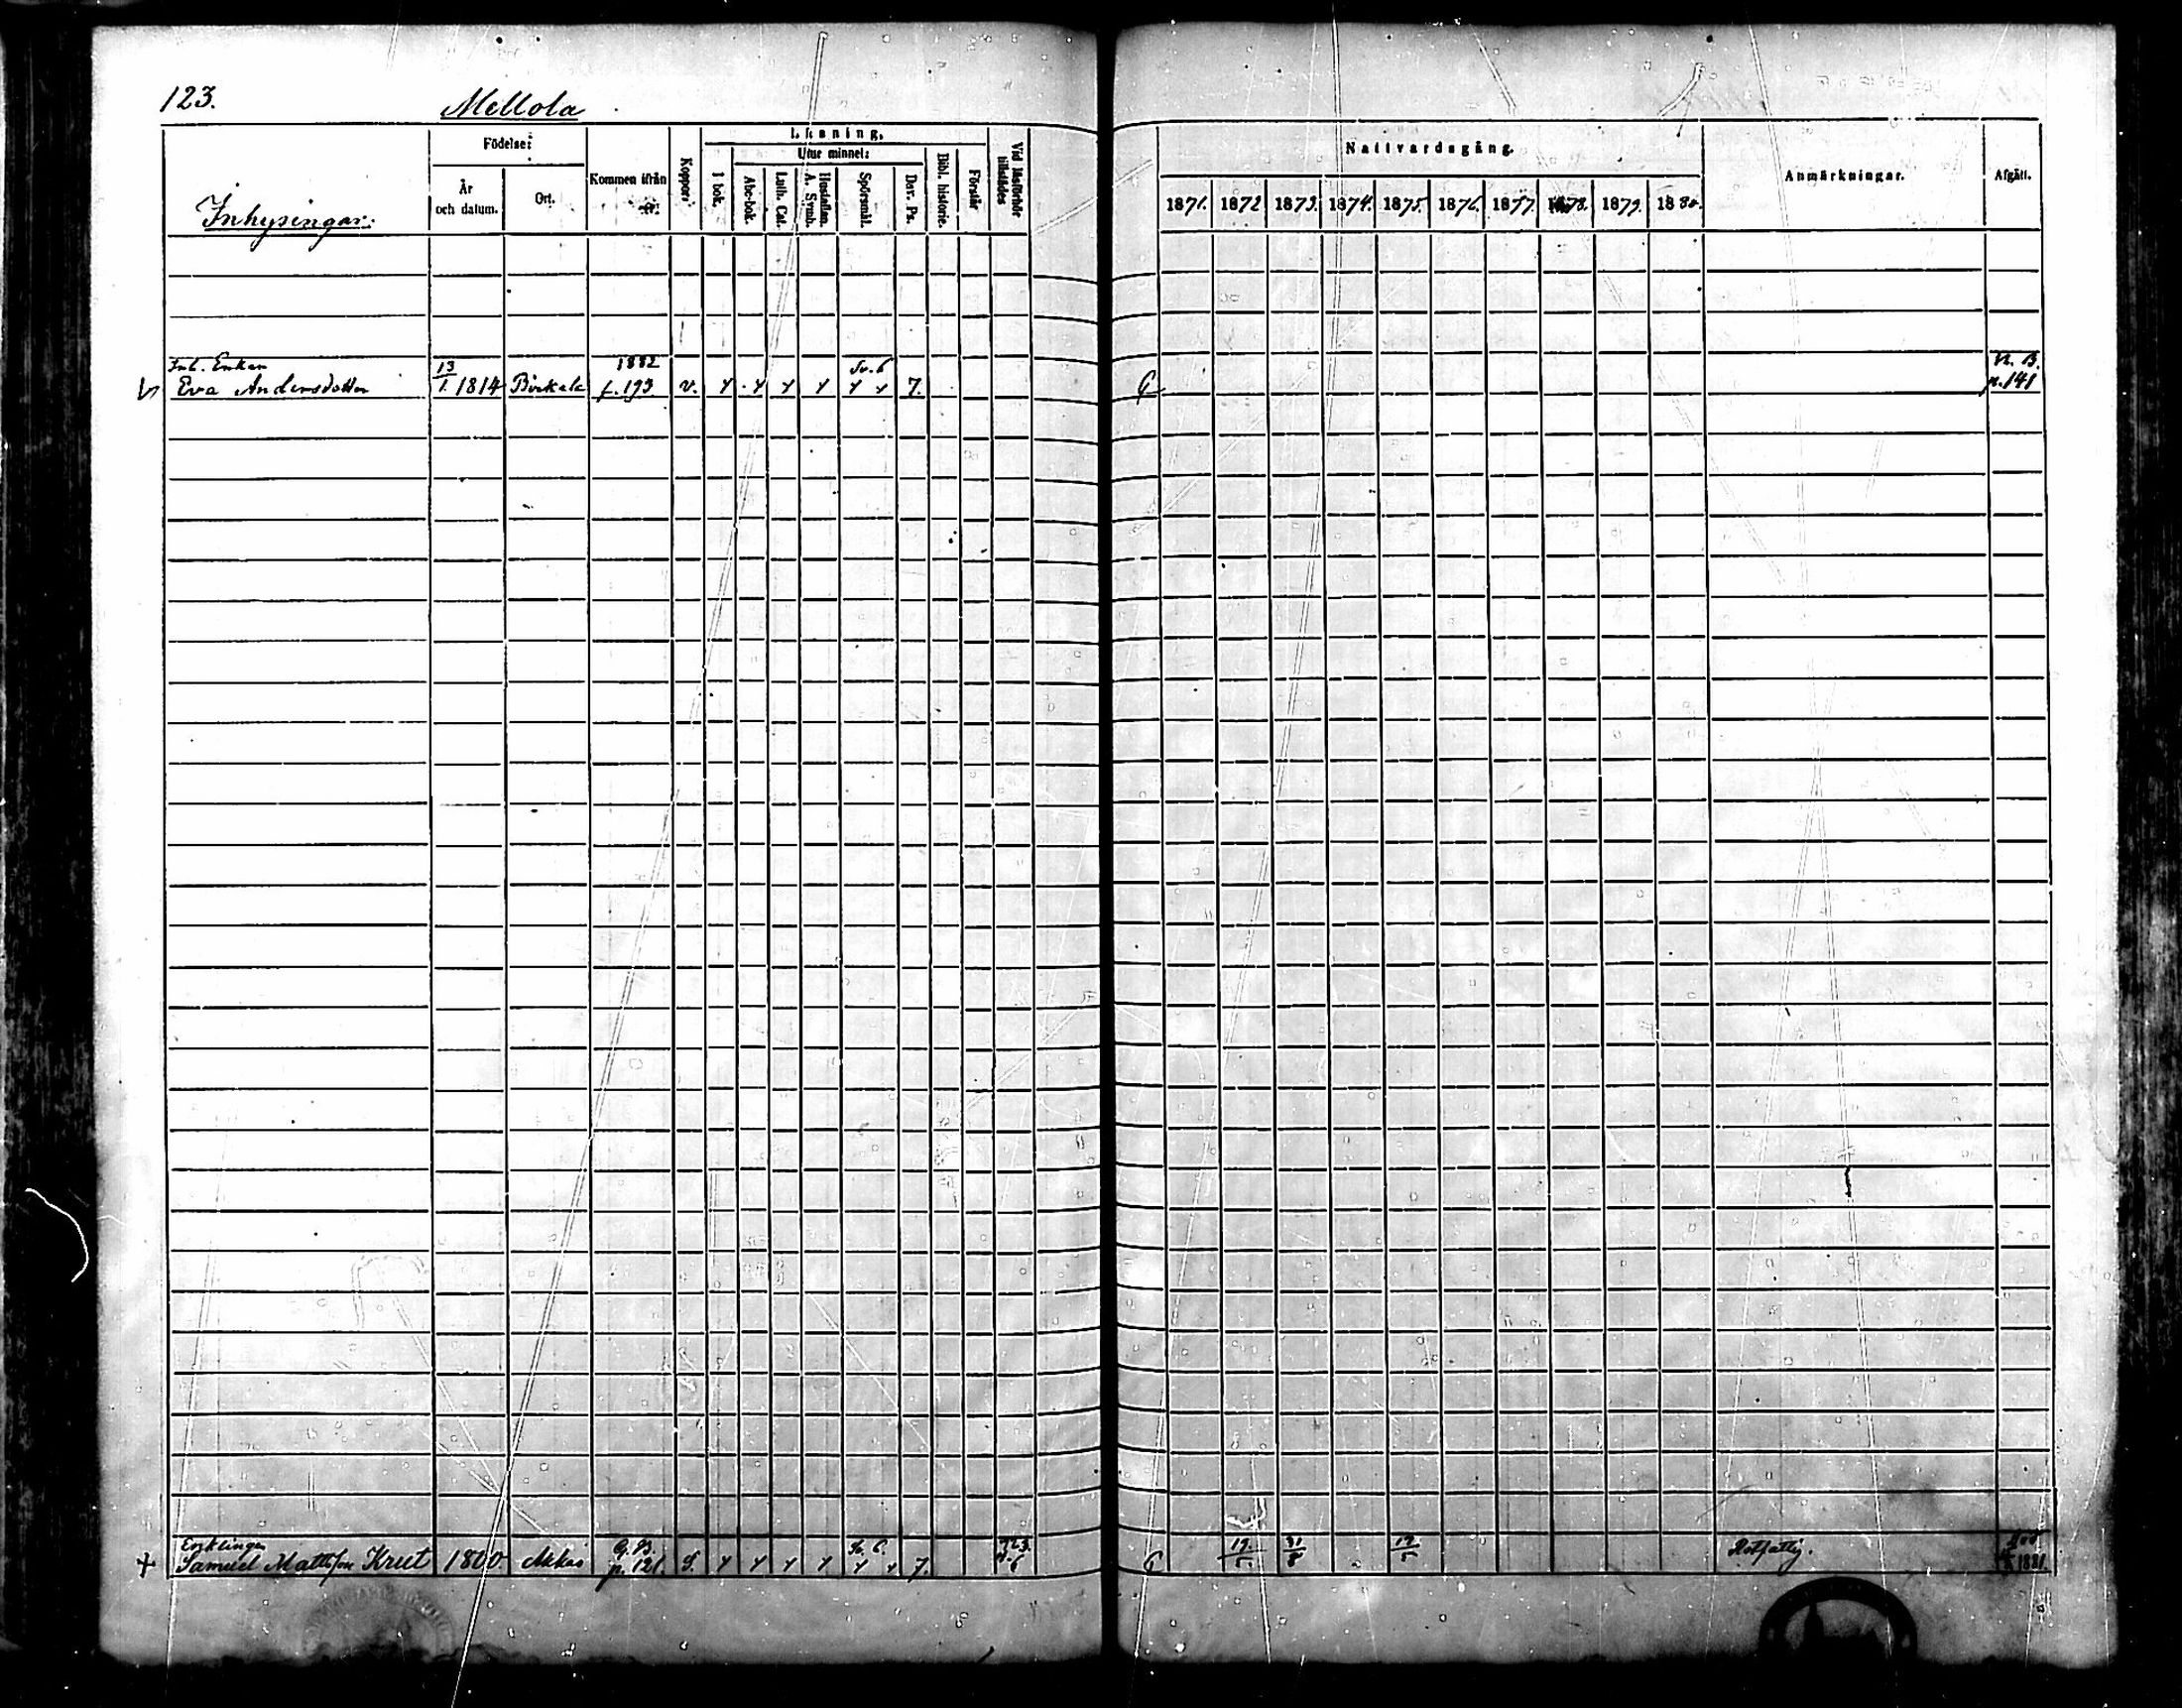 123. Mellola
Inhysingar:
Födelse:
År och datum.
Ort.
Kommen ifrån
Koppor.
Läsning,
I bok.
Utur minnet:
Abc-bok.
Luth. Cat.
Hustaflan. A. Symb.
Spörsmål.
Dav. Ps.
Bibl. historie.
Förstår
Vid läsförhör tillstädes
Nattvardsgång.
1871. 1872 1873. 1874. 1875. 1876. 1877 1878. 1879. 1880.
Anmärkningar.
Afgått.
Inh. Enkan 13 1882 Sv. 6 N. B.
Eva Andersdotter 1. 1814 Birkala f. 193 v. 7. G p. 141
Enklingen G. B. 19 31 19
Samuel Mattsson Krut 1800 p. 121. 7. G 5. 8 5. Rotfattig. 1881.